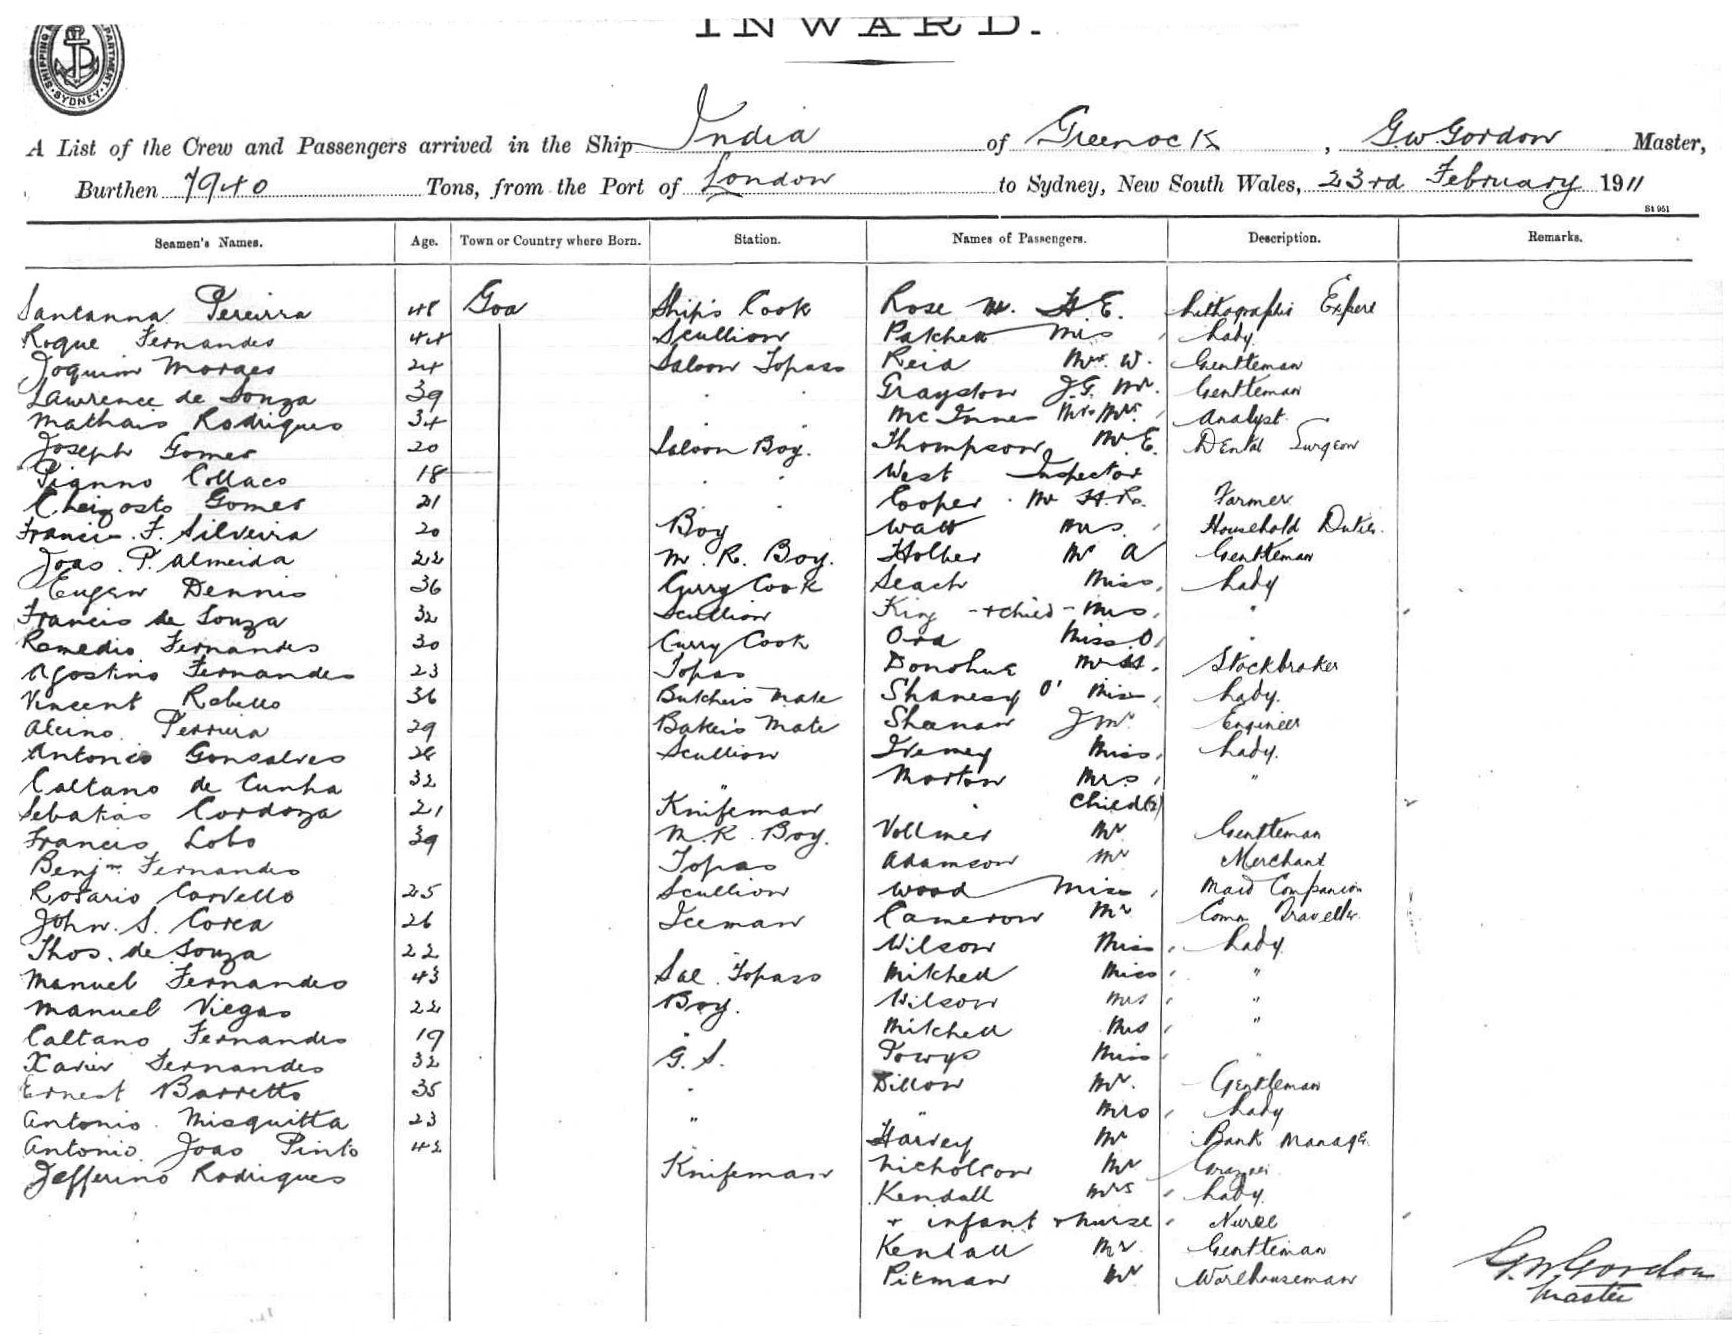 INWARD.
SHIPPING DEPARTMENT SYDNEY
A List of the Crew and Passengers arrived in the Ship India of Greenock, G.W. Gordon Master,
Burthen 7940 Tons, from the Port of London to Sydney, New South Wales, 23rd February 1911
St 951
Seamen's Names. Age. Town or Country where Born. Station. Names of Passengers. Description. Remarks.
Santanna Pereirra 48 Goa Ship's Cook Rose Mr. H. E. Lithographic Expert
Roque Fernandes 44 Scullion Patchett Mrs Lady
Joquim Moraes 24 Saloon Topass Reid Mr. W. Gentleman
Lawrence de Souza 39 " " Grayston J.G. Mr. Gentleman
Mathais Rodrigues 34 Mc Innes Mr. Analyst
Joseph Gomes 20 Saloon Boy. Thompson Mr E. Dental Surgeon
Pianno Collaco 18 " " West Inspector
Gomes 21 " Cooper Mr H. Farmer
Francis. F. Silveira 20 Boy Watt Mrs. Household Duties.
Joas. P. Almeida 22 M. R. Boy. Holber Mr A Gentleman
Eugen Dennis 36 Curry Cook Seach Miss, Lady
Francis de Souza 32 Scullion King + child - Mrs, "
Remedio Fernandes 30 Curry Cook Ord Miss O, "
Agostino Fernandes 23 Topas Donohue Mr H. Stockbroker
Vincent Rebello 36 Butchers Mate Shanesy O' Miss, Lady.
Alcino Perriera 29 Baker's Mate Sheenan J Mr Engineer
Antonio Gonsalves 28 Scullion Ivemey Miss, Lady.
Caltano de Cunha 32 " Morton Mrs, "
Sebatias Cordoza 21 Knifeman " Child (2)
Francis Lobo 39 M. R. Boy. Vollmer Mr Gentleman
Benjn. Fernandes Topas Adamson Mr Merchant
Rosario Corvello 25 Scullion Wood Miss, Maid Companion
John. S. Corea 26 Iceman Cameron Mr Comm Traveller
Thos. de Souza 22 Wilson Miss, Lady
Manuel Fernandes 43 Sal. Topass Mitchell Miss, "
Manuel Viegas 22 Boy. Wilson Mrs, "
Caltano Fernandes 19 " Mitchell Mrs, "
Xavier Fernandes 32 G. S. Powys Miss, "
Ernest Barretto 35 " Dillon Mr. Gentleman
Antonio. Misquitta 23 " " Mrs, Lady
Antonio. Joao Pinto 42 Harvey Mr Bank Manager
Jefferino Rodrigues Knifeman Nicholson Mr Grazier
Kendall Mrs, Lady.
+ infant + nurse, Nurse
Kendall Mr. Gentleman
Pitman Mr Warehouseman
G.W. Gordon
Master